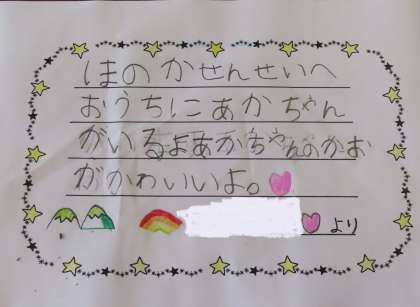 ほのかせんせいへ
おうちにあかちゃん
がいるよあかちゃんのかお
がかわいいよ。
より